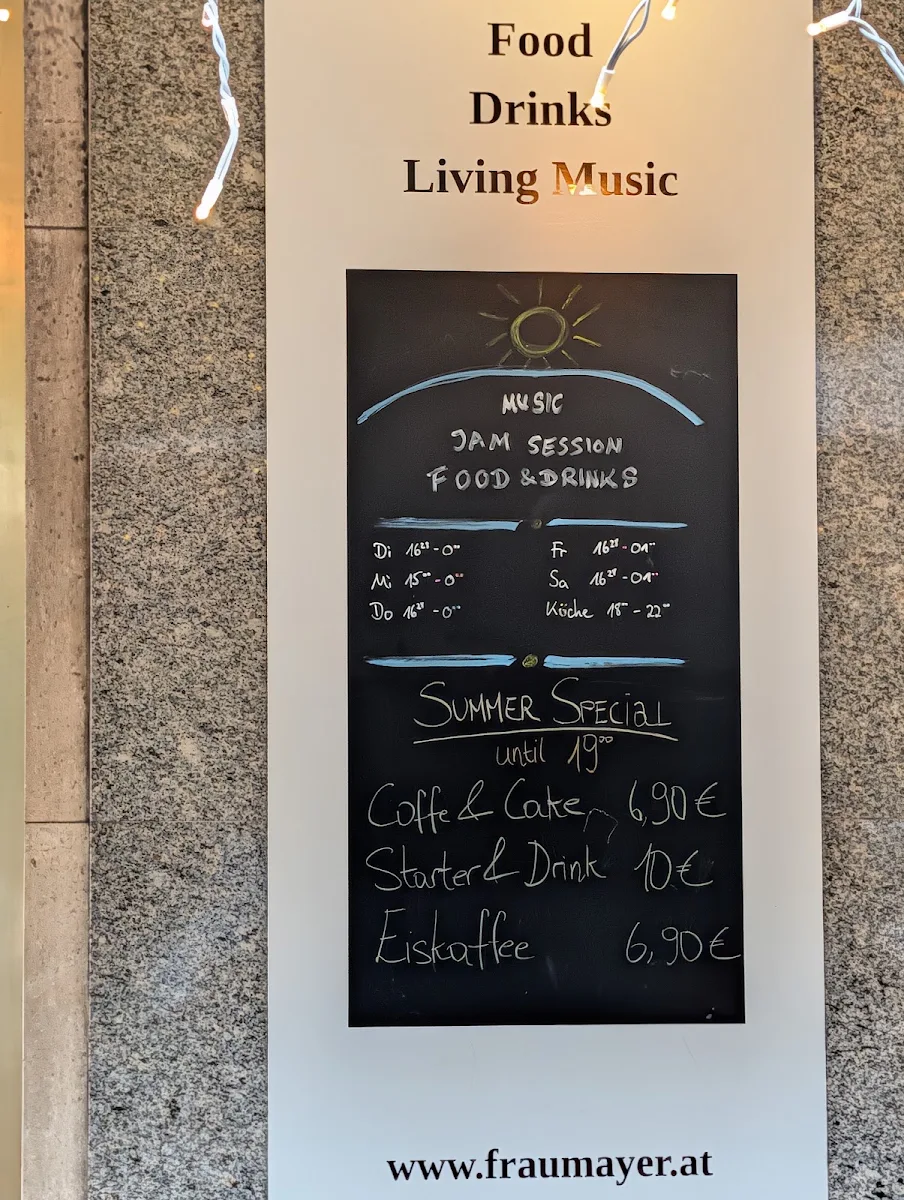 Food
Drinks
Living Music
MUSIC
JAM SESSION
FOOD & DRINKS
Di 16²⁹ - 0⁰⁰
Mi 15⁰⁰ - 0⁰⁰
Do 16²⁹ - 0⁰⁰
Fr 16²⁹ - 01⁰⁰
Sa 16²⁹ - 01⁰⁰
Köche 18⁰⁰ - 22⁰⁰
SUMMER SPECiAL
until 19⁰⁰
Coffe & Cake 6,90 €
Starter & Drink 10 €
Eiskaffee 6,90 €
www.fraumayer.at